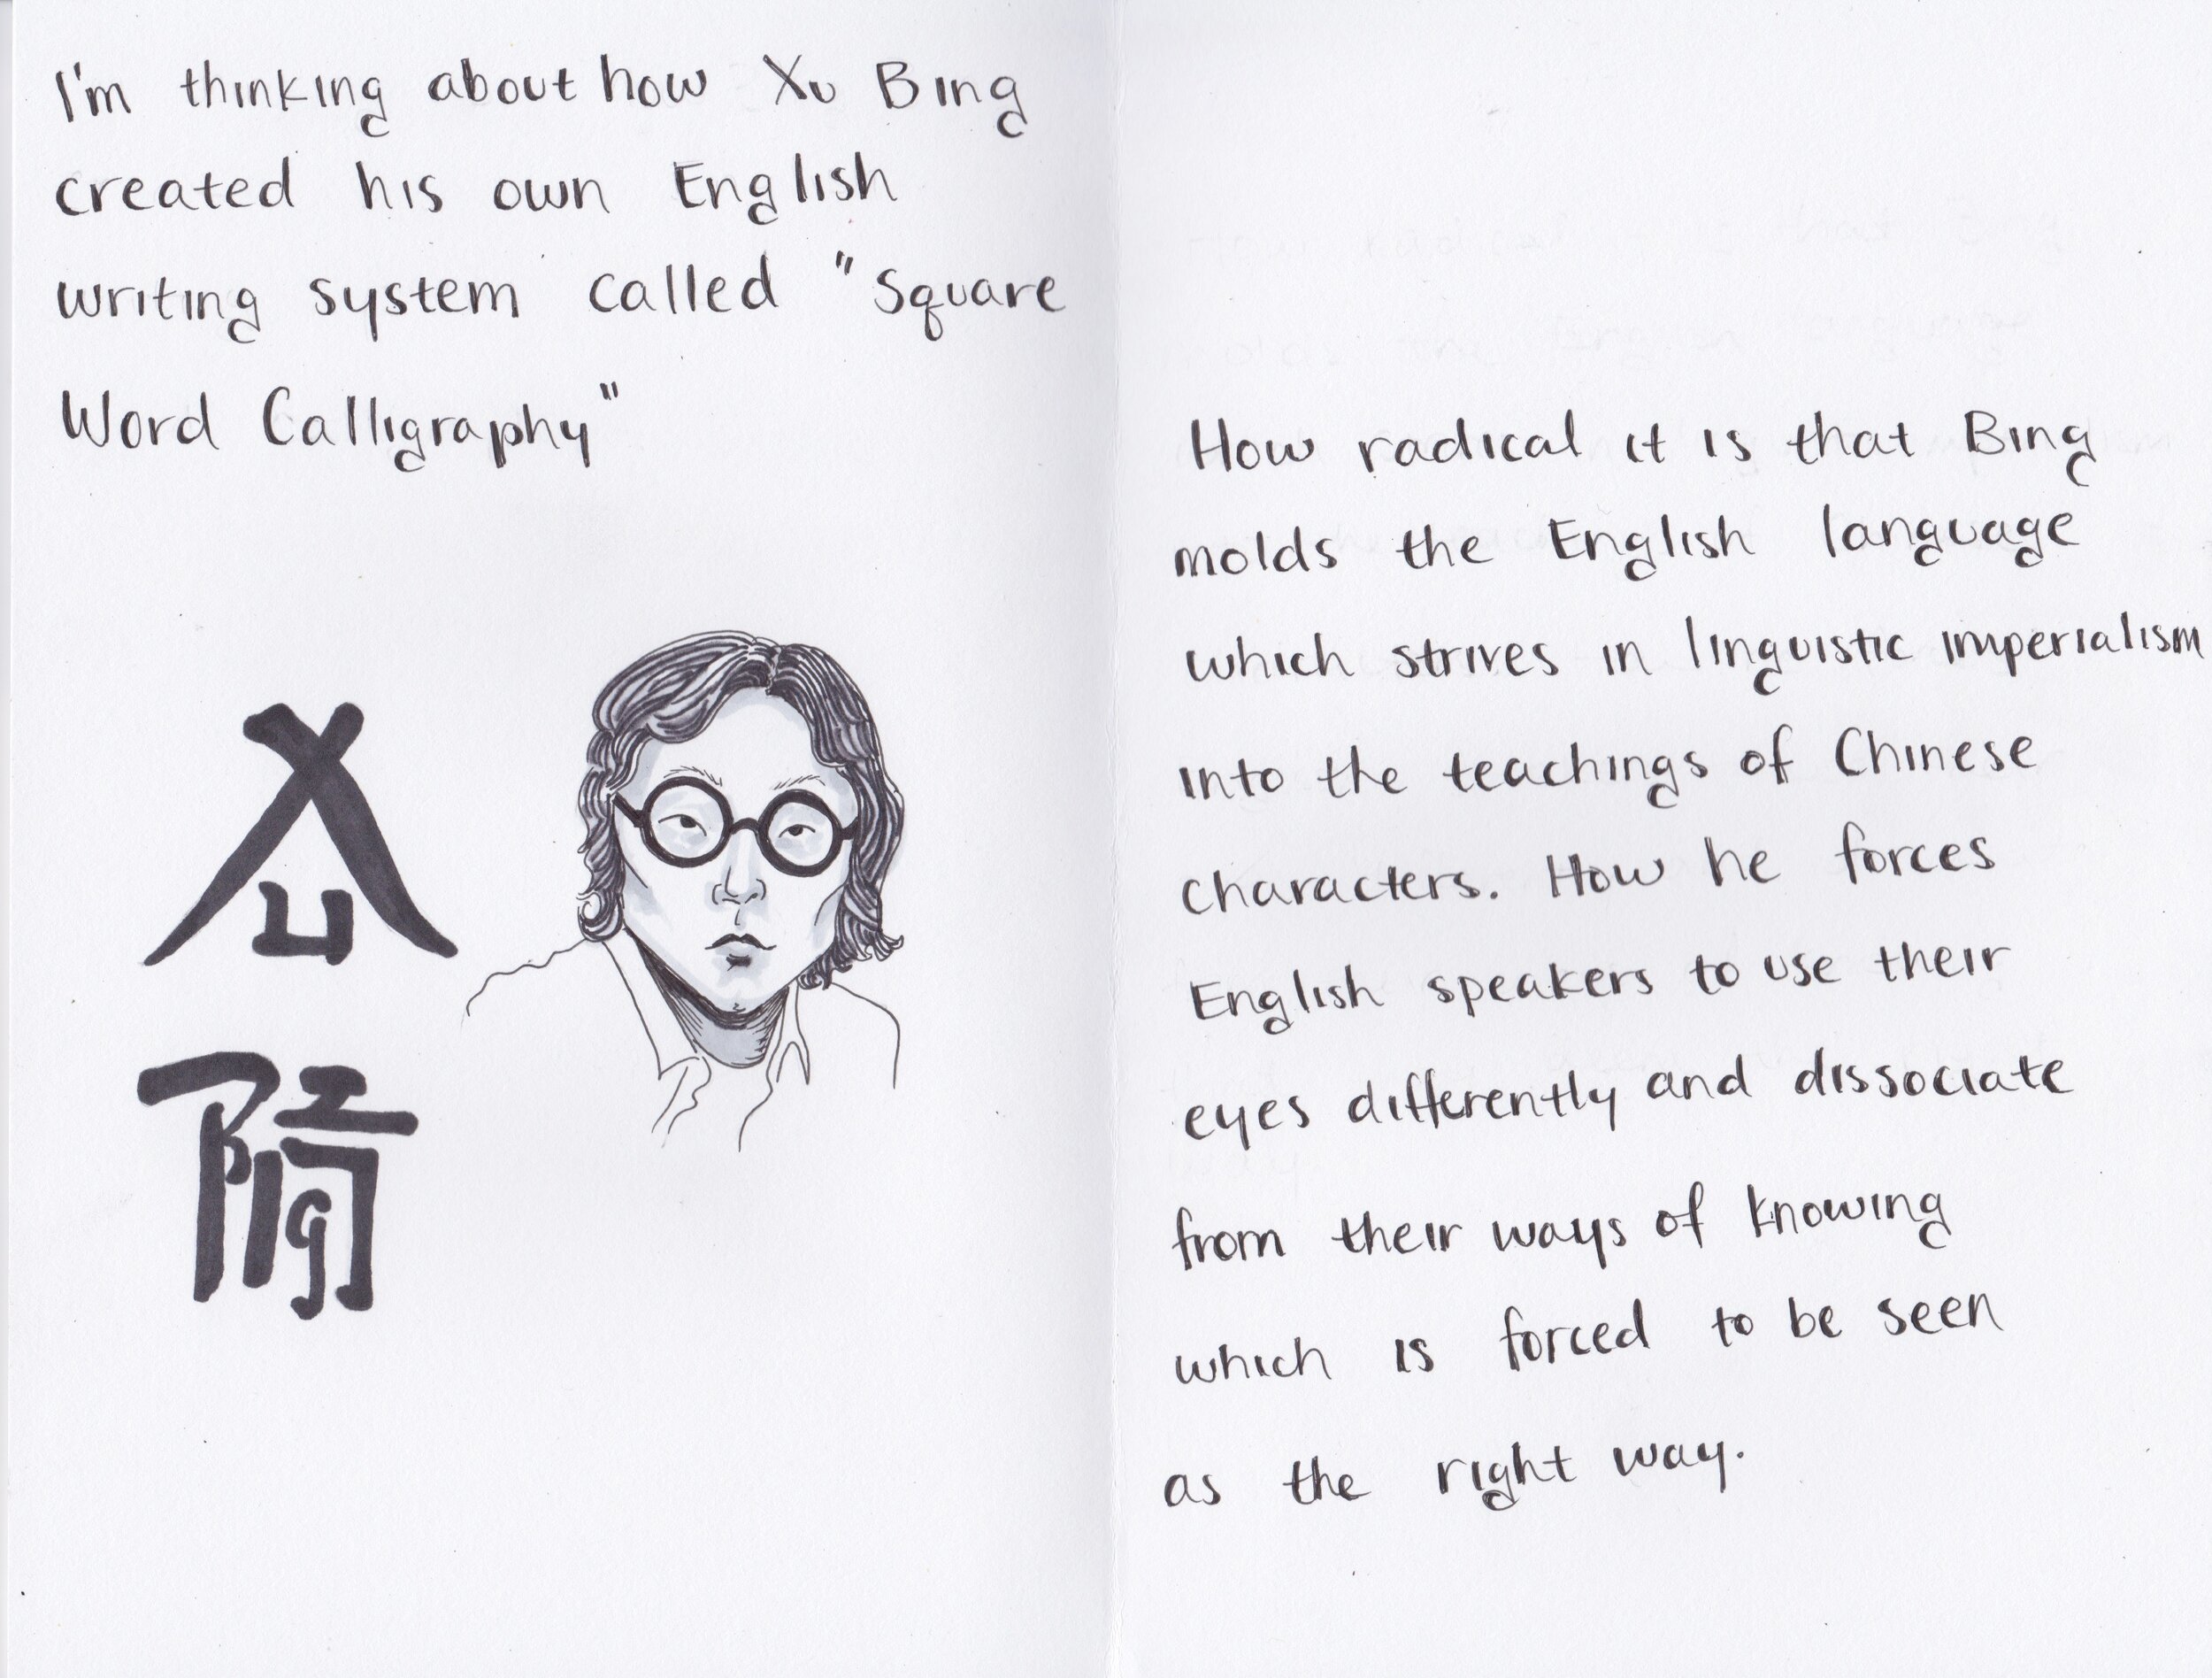 I'm thinking about how Xu Bing
created his own English
writing system called "Square
Word Calligraphy"
Xu
Bing
How radical it is that Bing
molds the English language
which strives in linguistic imperialism
into the teachings of Chinese
characters. How he forces
English speakers to use their
eyes differently and dissociate
from their ways of knowing
which is forced to be seen
as the right way.